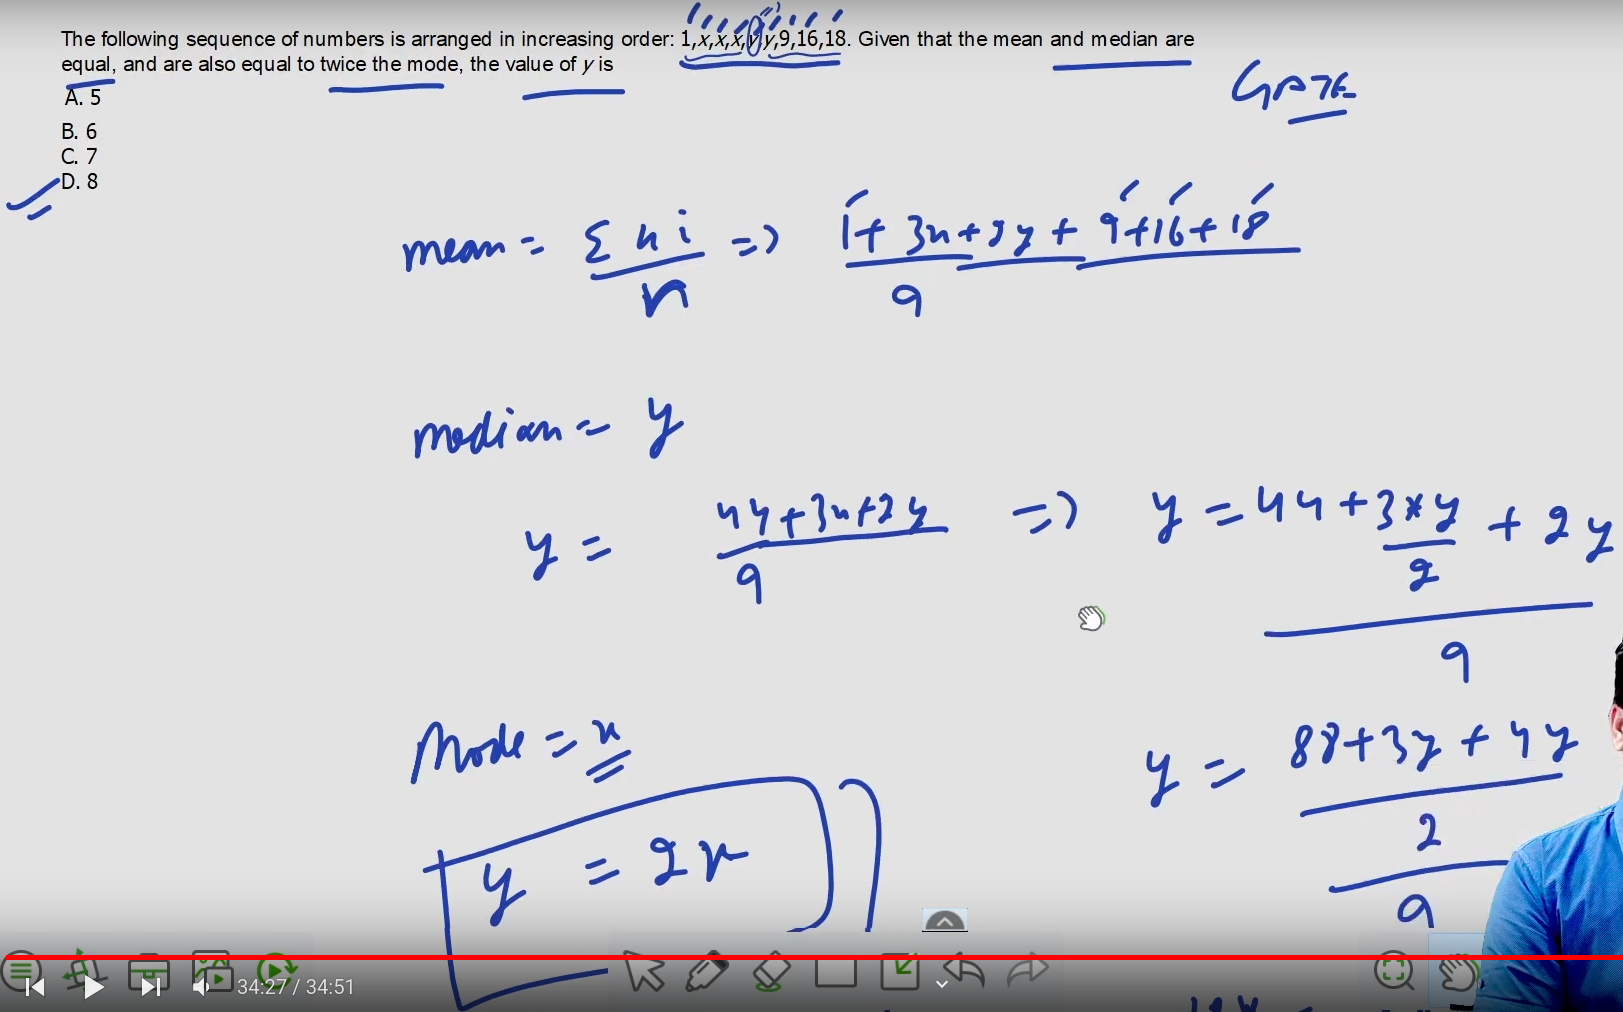 The following sequence of numbers is arranged in increasing order: 1,x,x,x,y,y,9,16,18. Given that the mean and median are
equal, and are also equal to twice the mode, the value of y is
GATE
A. 5
B. 6
C. 7
D. 8
mean = Σxi/n => 1+3x+2y+9+16+18/9
median = y
y = 44+3x+2y/9 => y = 44+3*y/2+2y/9
Mode = x
y = 88+3y+4y/2/9
y = 2x
34:27 / 34:51